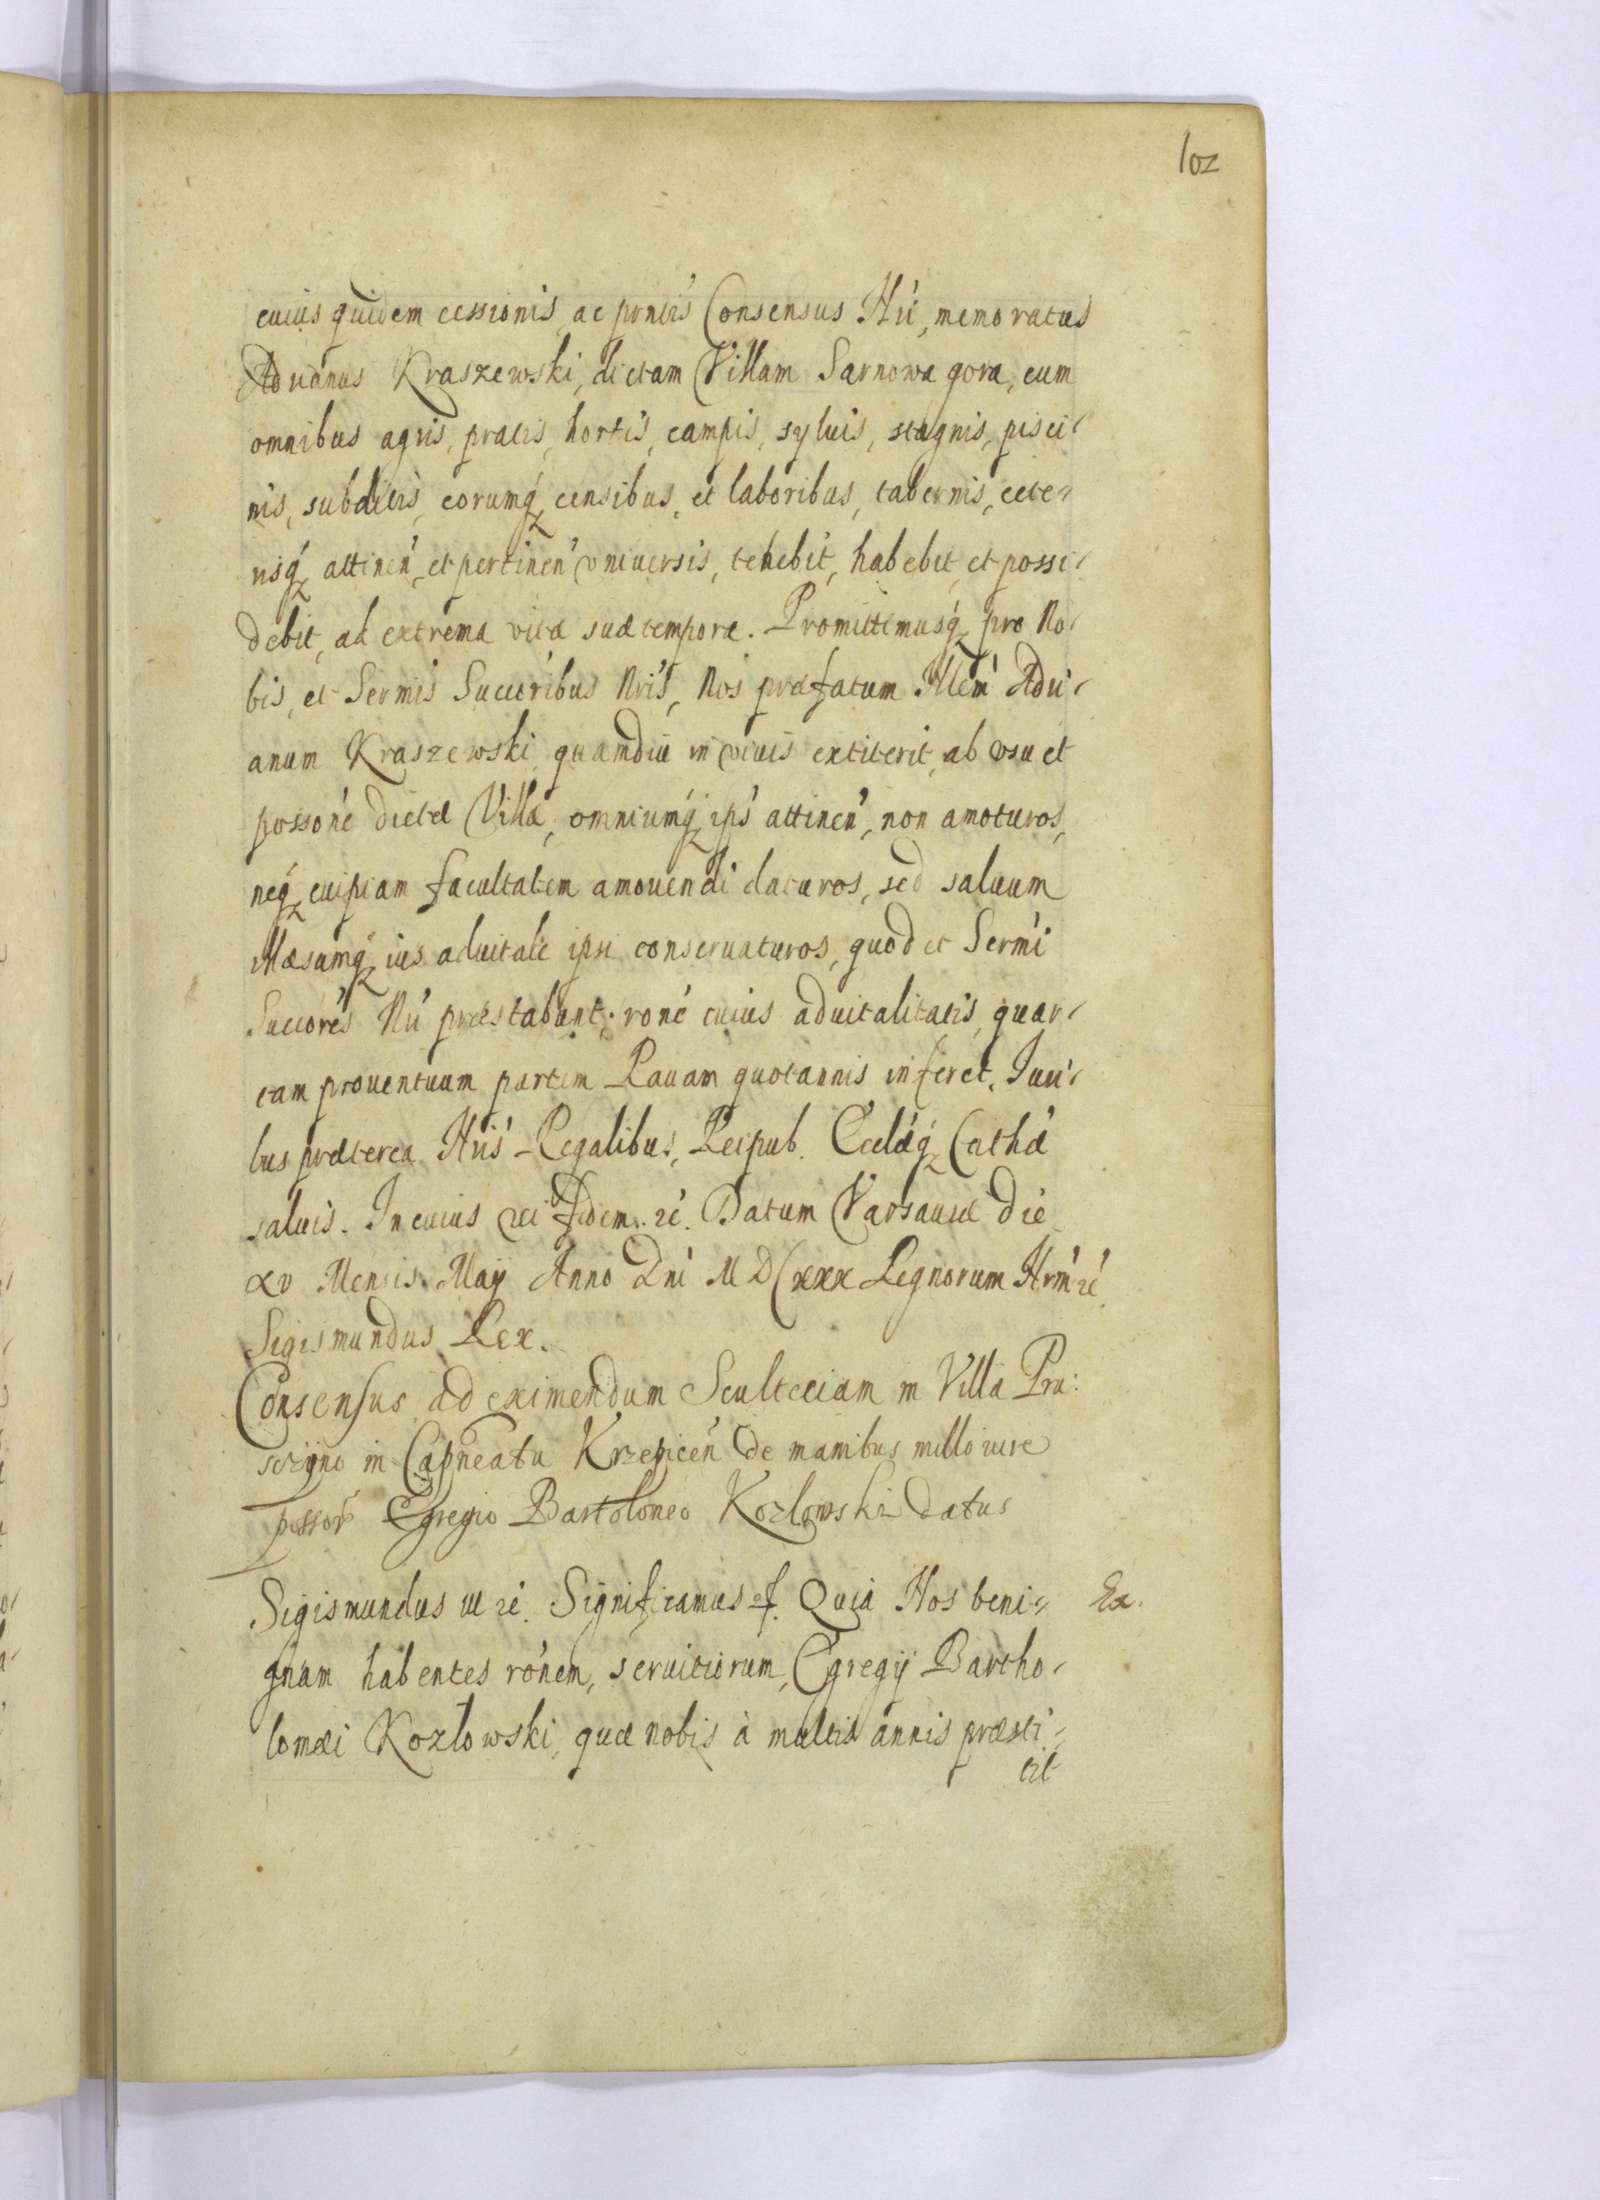 102
cuius quidem cessionis, ac pnĩis Consensus Nri, memoratus
Adrianus Kraszewski, dictam Villam Sarnowa gora, cum
omnibus agris, pratis, hortis, campis, syluis, stagnis, pisci-
nis, subditis, eorumq́ censibus, et laboribus, tabernis, cete-
risq́ attinen̄, et pertinen̄ vniuersis, tenebit, habebit, et possi-
debit, ad extrema vitæ suæ tempora. Promittimusq́ pro No-
bis, et Sermis Succoribus Nris, Nos præfatum Illem Adri-
anum Kraszewski, quamdiu in viuis extiterit, ab vsu et
possone dictæ Villæ, omniumq́ ips attinen̄, non amoturos,
neq́ cuipiam facultatem amouendi daturos, sed saluum
illæsumq́ ius aduitale ipsi conseruaturos, quod et Sermi
Succores Nri præstabunt; rone cuius aduitalitatis, quar-
tam prouentuum partem Rauam quotannis inferet. Iuri-
bus præterea Nris Regalibus, Reipub. Ecclæq́ Cathæ
saluis. In cuius rei fidem. rć. Datum Varsauiæ Die
xv Mensis Maij Anno Dni MDCxxx Regnorum Nrm rć
Sigismundus Rex.
Consensus ad eximendum Scultetiam in Villa Pra:
szijno in Capneatu Krzepicen̄ de manibus nullo iure
possor Egregio Bartolomeo Kozlowski datus
Sigismundus III rć. Significamus rć. Quia Nos beni- Ex.
gnam habentes ronem, seruitiorum, Egregij Bartho-
lomæi Kozlowski, quæ nobis à multis annis præsti-
tit